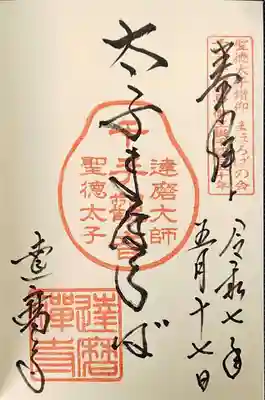 聖徳太子讃仰 まほろばの会
奉拝
令和七年
五月十七日
太子まほろば
達磨大師
千手觀音
聖徳太子
達磨寺
達磨
禪寺